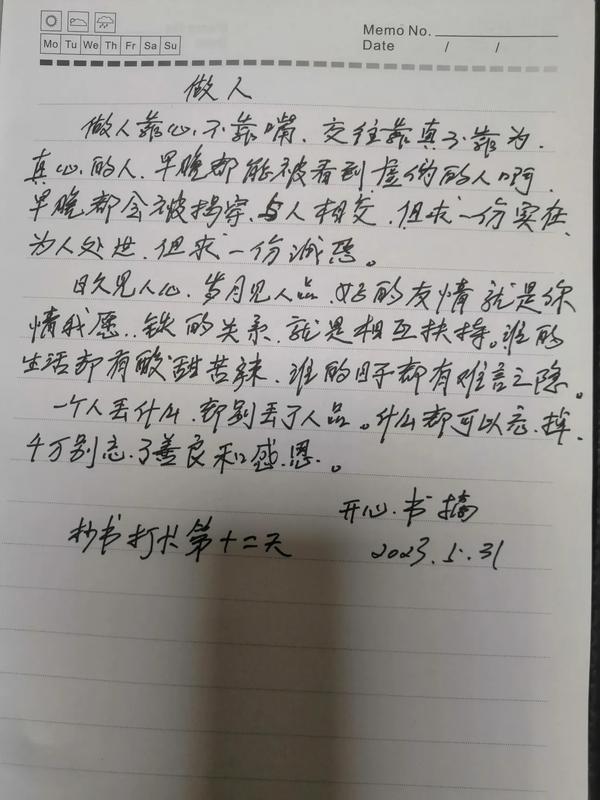 Memo No.
Mo Tu We Th Fr Sa Su
Date / /
做人
做人靠心.不靠嘴.交往靠真不靠为.
真心的人.早晚都能被看到虚伪的人啊.
早晚都会被揭穿.与人相交.但求一份实在.
为人处世.但求一份诚恳。
日久见人心.岁月见人品.好的友情就是你
情我愿..铁的关系.就是相互扶持。谁的
生活都有酸甜苦辣.谁的日子都有难言之隐。
一个人丢什么.都别丢了人品。什么都可以忘掉.
千万别忘了善良和感恩。
开心书摘
抄书打卡第十二天
2023.5.31